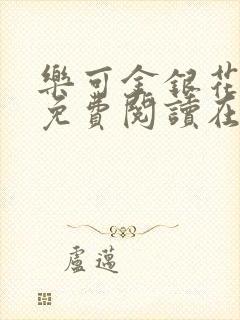 樂可金銀花
免費閱讀在
盧薖